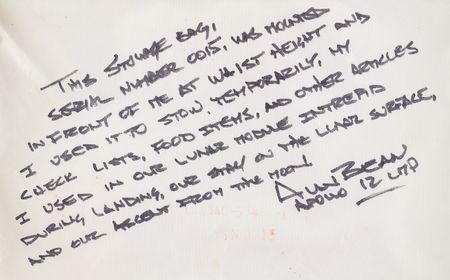 THIS STOWAGE BAG,
SERIAL NUMBER 0015, WAS MOUNTED
IN FRONT OF ME AT WAIST HEIGHT AND
I USED IT TO STOW, TEMPORARILY, MY
CHECK LISTS, FOOD ITEMS, AND OTHER ARTICLES
I USED IN OUR LUNAR MODULE INTREPID
DURING LANDING, OUR STAY ON THE LUNAR SURFACE,
AND OUR ASCENT FROM THE MOON!
ALAN BEAN
APOLLO 12 LMP